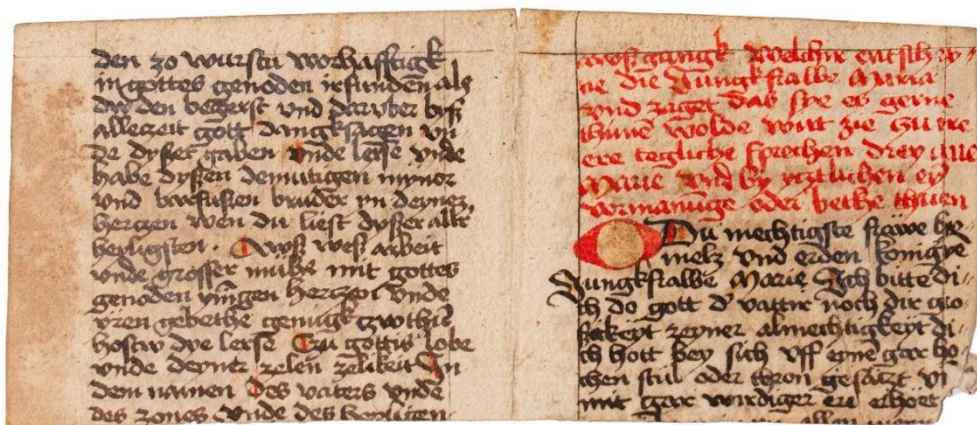 den zo wurstu worhafftigk
in gottes genoden irfunden als
du den begerst und daruber byß
allezeit gott dangksagen vn̄
de dyßer gaben vnde lerße vnde
habe dyßen demutigen mynor
vnd barfusßen bruder yn deynez
herzen wen du ließt dyßer aller
heyligsten. Awß weß arbeit
vnde grosser mühe mit gottes
genoden yn̄gen herczen vnde
yren gebethe genugk gwthū
hostw dye lerße Czu gottis lobe
vnde deyner zelen zelikeit In
dem namen Des vaters vnde
des zones Vnde des heyligen
gangk welchir entsch
ne die Jungkfrawe Maria
vnd zaget das sye es gerne
thune wolde wut zie zu ire
ere tegliche sprechen drey aue
Marie vnd by ytzlichen ey
vormanūge oder bethe thuen
O Du mechtigste frawe hy-
melz vnd erden konigyñe
Jungkfrawe Marie Ich bitte di-
ch do gott d' vattir noch dir gro
zeyner almechtigkeyt di-
ch hott bey sich vff eynē gar ho
chen stul oder thron gesaczt vn̄
mit gar wirdiger ere erhoet
allen